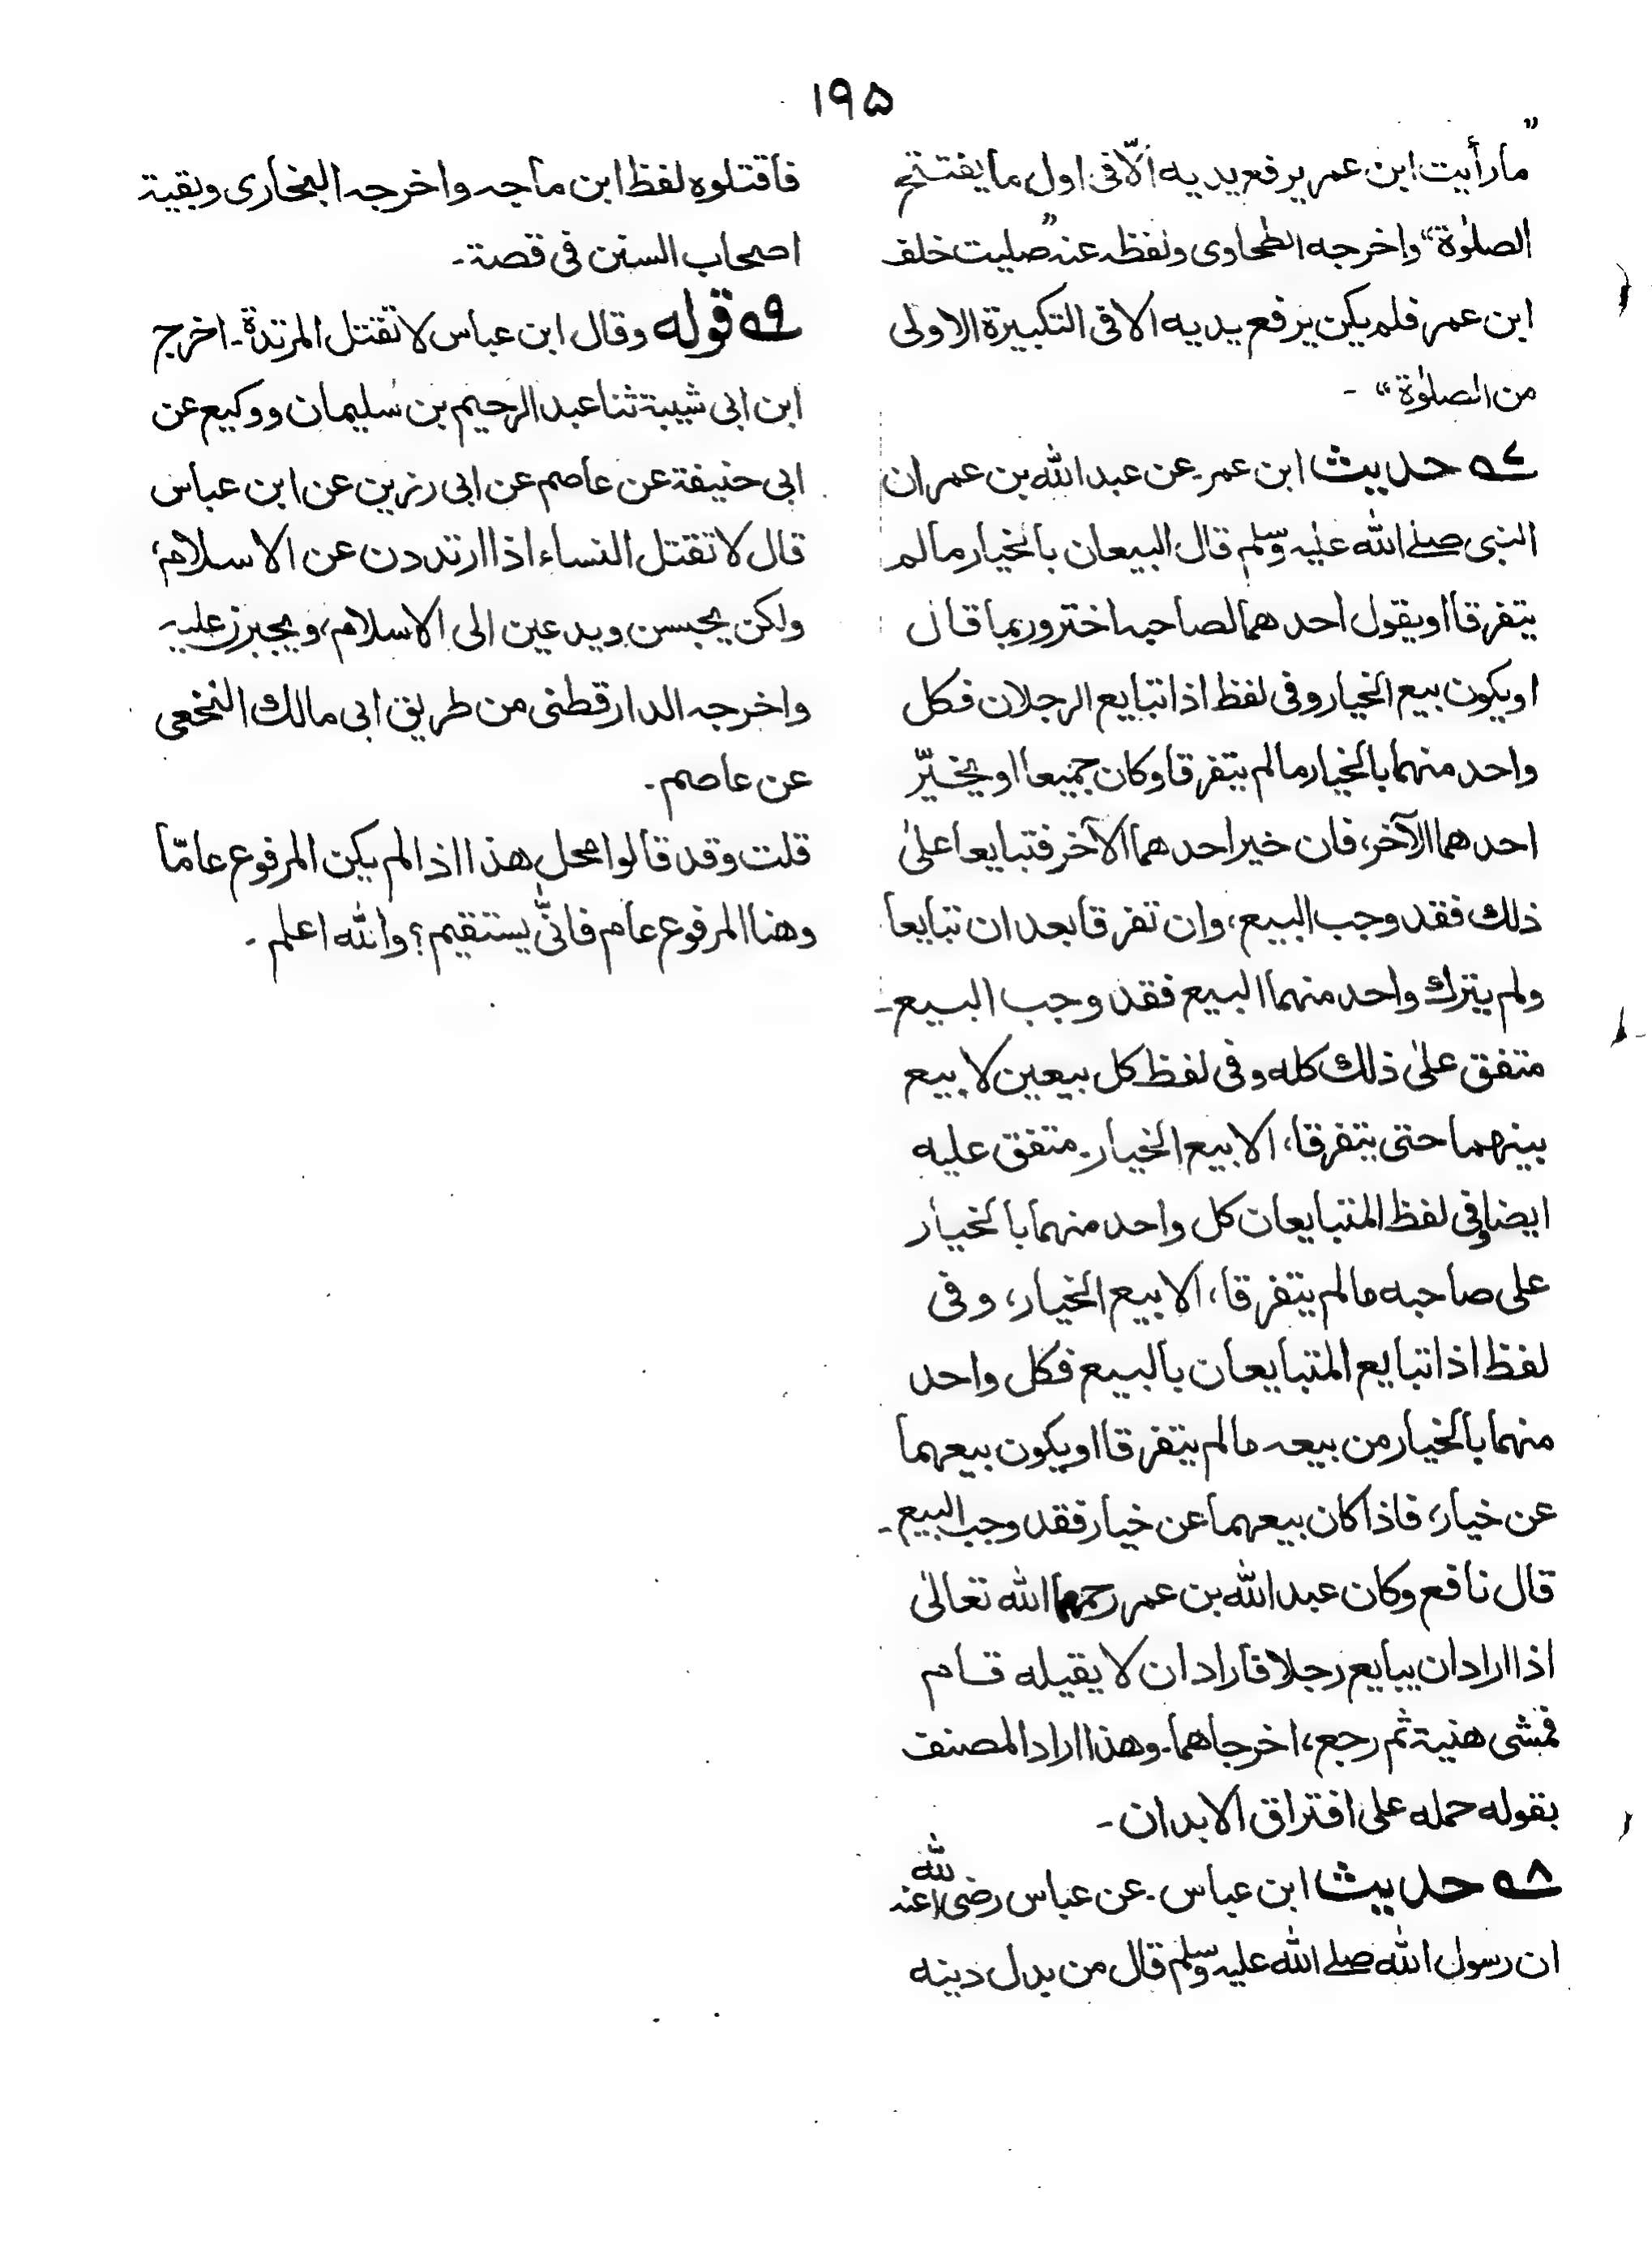 ۱۹۵
”مارأيت ابن عمر يرفع يديه الّا فى اول ما يفتتح
الصلوٰة“ واخرجه الطحاوى ولفظه عنه ”صليت خلف
ابن عمر فلم يكن يرفع يديه الا فى التكبيرة الاولى
من الصلوٰة“ ۔
۷ حديث ابن عمر۔ عن عبد الله بن عمر ان
النبى صلے الله عليه وسلم قال البيعان بالخيار مالم
يتفرقا او يقول احدهما لصاحبه اختر وربما قال
او يكون بيع الخيار وفى لفظ اذا تبايع الرجلان فكل
واحد منهما بالخيار مالم يتفرقا وكان جميعا او يخيّر
احدهما الآخر، فان خير احدهما الآخر فتبايعا علىٰ
ذلك فقد وجب البيع، وان تفرقا بعد ان تبايعا
ولم يترك واحد منهما البيع فقد وجب البيع۔
متفق علىٰ ذلك كله وفى لفظ كل بيعين لا بيع
بينهما حتى يتفرقا، الا بيع الخيار۔ متفق عليه
ايضا وفى لفظ المتبايعان كل واحد منهما بالخيار
على صاحبه مالم يتفرقا، الا بيع الخيار، وفى
لفظ اذا تبايع المتبايعان بالبيع فكل واحد
منهما بالخيار من بيعه مالم يتفرقا او يكون بيعهما
عن خيار، فاذا كان بيعهما عن خيار فقد وجب البيع۔
قال نافع وكان عبد الله بن عمر رحمهما الله تعالىٰ
اذا اراد ان يبايع رجلا فاراد ان لا يقيله قام
فمشى هنية ثم رجع، اخرجاهما۔ وهذا اراد المصنف
بقوله حمله على افتراق الابدان۔
۸ حديث ابن عباس۔ عن عباس رضى الله عنه
ان رسول الله صلے الله عليه وسلم قال من بدل دينه
فاقتلوه لفظ ابن ماجه واخرجه البخارى وبقية
اصحاب السنن فى قصة۔
۹ قوله وقال ابن عباس لا تقتل المرتدة۔ اخرج
ابن ابى شيبة ثنا عبد الرحيم بن سليمان ووكيع عن
ابى حنيفة عن عاصم عن ابى رزين عن ابن عباس
قال لا تقتل النساء اذا ارتددن عن الاسلام،
ولكن يحبسن ويدعين الى الاسلام، ويجبرن عليه
واخرجه الدارقطنى من طريق ابى مالك النخعى
عن عاصم۔
قلت وقد قالوا محل هذا اذا لم يكن المرفوع عامّا
وهنا المرفوع عام فانّٰى يستقيم؟ والله اعلم۔